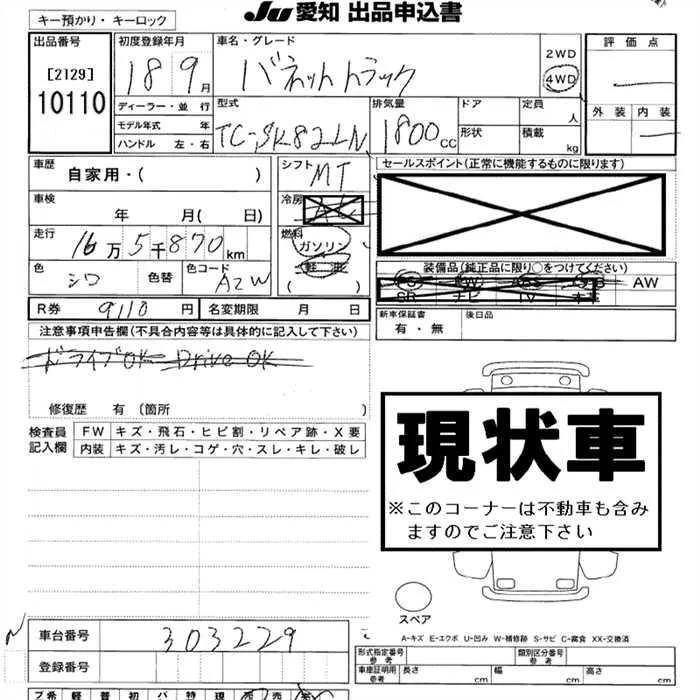 Ju 愛知 出品申込書
キー預かり・キーロック
出品番号 初度登録年月 車名・グレード 評価点
[2129] 18 9月 バネットトラック 2WD
10110 4WD
ディーラー・並 行 型式 排気量 ドア 定員 外装 内装
モデル年式 年 TC-SK82LN 1800cc 形状 人
ハンドル 左・右 積載 kg
車歴 自家用・( ) シフト MT セールスポイント(正常に機能するものに限ります)
車検 年 月( 日) 冷房 AC
走行 16万5千870km 燃料 ガソリン
軽油
色 シロ 色替 色コード AZW ( )
装備品(純正品に限り○をつけてください)
PS PW ABS エアB AW
SR ナビ TV 本革
R券 9110円 名変期限 月 日 新車保証書 後日品
有・無
注意事項申告欄(不具合内容等は具体的に記入して下さい)
ドライブOK Drive OK
修復歴 有〔箇所 〕
検査員 FW キズ・飛石・ヒビ割・リペア跡・X要
記入欄 内装 キズ・汚レ・コゲ・穴・スレ・キレ・破レ
現状車
※このコーナーは不動車も含み
ますのでご注意下さい
スペア
A-キズ E-エクボ U-凹み W-補修跡 S-サビ C-腐食 XX-交換済
車台番号 303229
登録番号
型式指定番号 参考 類別区分番号 参考
車庫証明用 参考 長さ cm 幅 cm 高さ cm